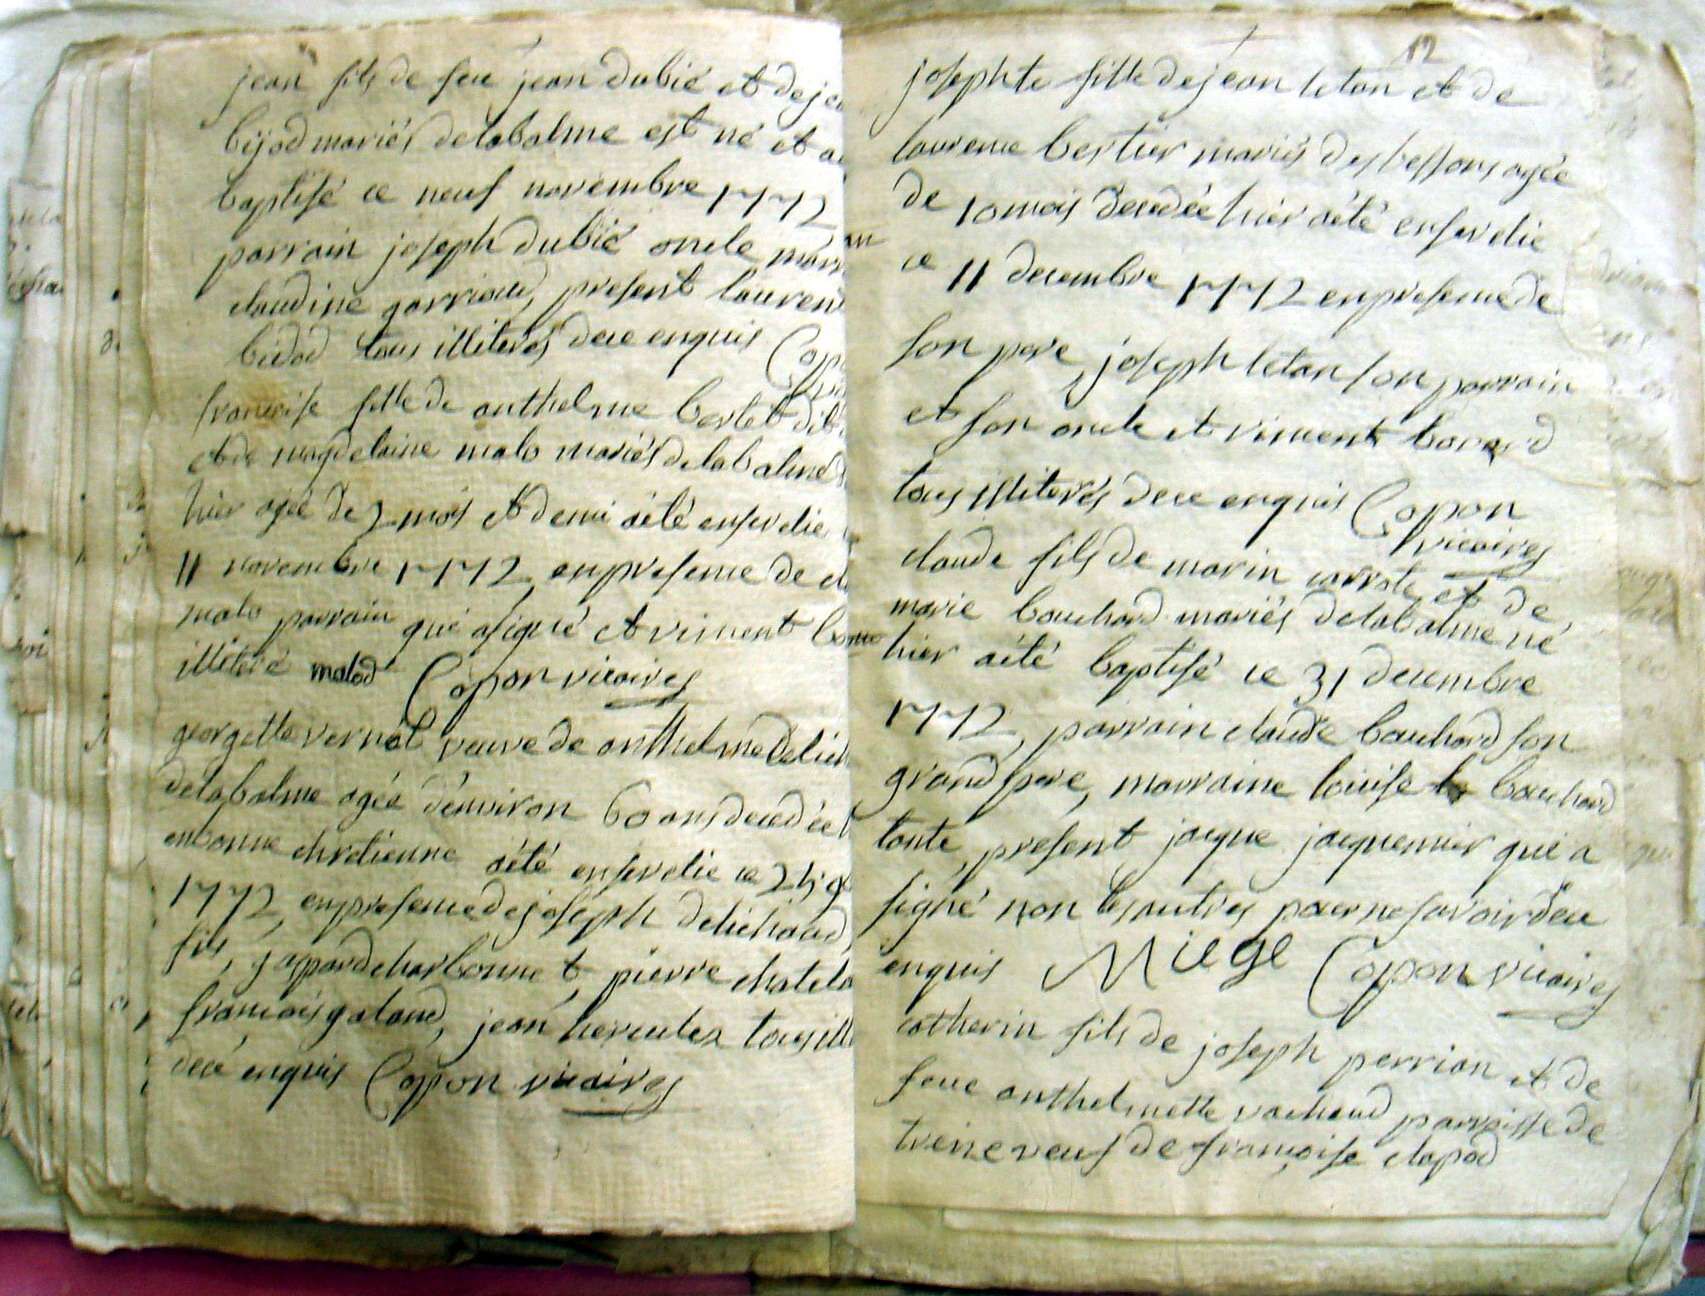 jean fils de feu jean dubié et de
bijod mariés delabalme est né et a
baptisé ce neuf novembre 1772
parrain joseph dubié oncle
claudine garriaud, present
bidod tous illiterés dece enquis
francoise fille de anthelme bertet
et de magdelaine malo mariés delabalme
hier agée de 2 mois et demi aété enservelie
11 novembre 1772, enpresence de
malo parrain qui asigné et vincent
illiteré malod Copon vicaires
georgette vernat veuve de anthelme
delabalme agée d'environ 60 ans decedée
enbonne chretienne aété enservelie ce
1772, enpresence de joseph delichaud,
fils, gaspard charbonnet, pierre
francois galaud, jean hercules
dece enquis Copon vicaires
12
josephte fille de jean letan et de
laurence bertier mariés desbessons agée
de 10 mois decedée hier aété enservelie
ce 11 decembre 1772 enpresence de
son pere, joseph letan son parrain
et son oncle et vincent borard
tous illiterés dece enquis Copon
vicaires
claude fils de marin carrate et de
marie bouchard mariés delabalme né
hier aété baptisé ce 31 decembre
1772, parrain claude bouchard son
grand pere, marraine louise bouchard
tante, present jacque jacquemier qui a
signé non lesautres pour nesavoir dece
enquis Miege Copon vicaires
catherin fils de joseph perrian et de
feue anthelmette vachaud parroisse de
veuf de françoise clapod